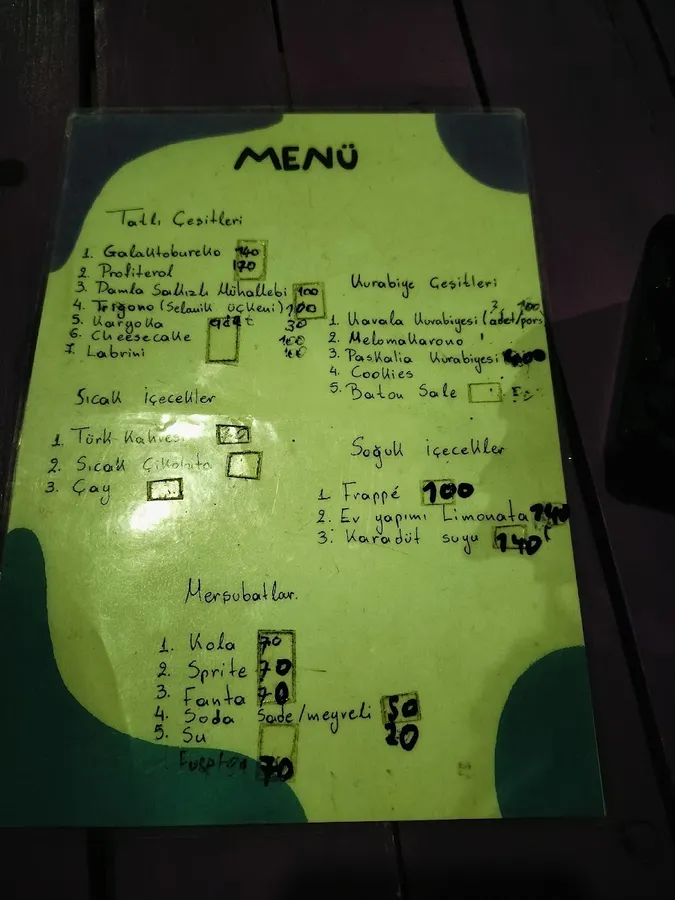 MENÜ
Tatlı Çeşitleri
1. Galaktobureko 140
2. Profiterol 170
3. Damla Sakızlı Muhallebi 100
4. Trigono (Selanik üçkeni) 100
5. Karyoka adet 30
6. Cheesecake 100
7. Labrini 100
Kurabiye Çeşitleri
1. Kavala Kurabiyesi (adet/pors 100
2. Melomakarono
3. Paskalia Kurabiyesi
4. Cookies
5. Baton Sale
Sıcak içecekler
1. Türk Kahvesi
2. Sıcak Çikolata
3. Çay
Soğuk içecekler
1. Frappé 100
2. Ev yapımı Limonata 140
3. Karadut suyu 140
Meşrubatlar.
1. Kola 70
2. Sprite 70
3. Fanta 70
4. Soda Sade/meyveli 50
5. Su 20
70